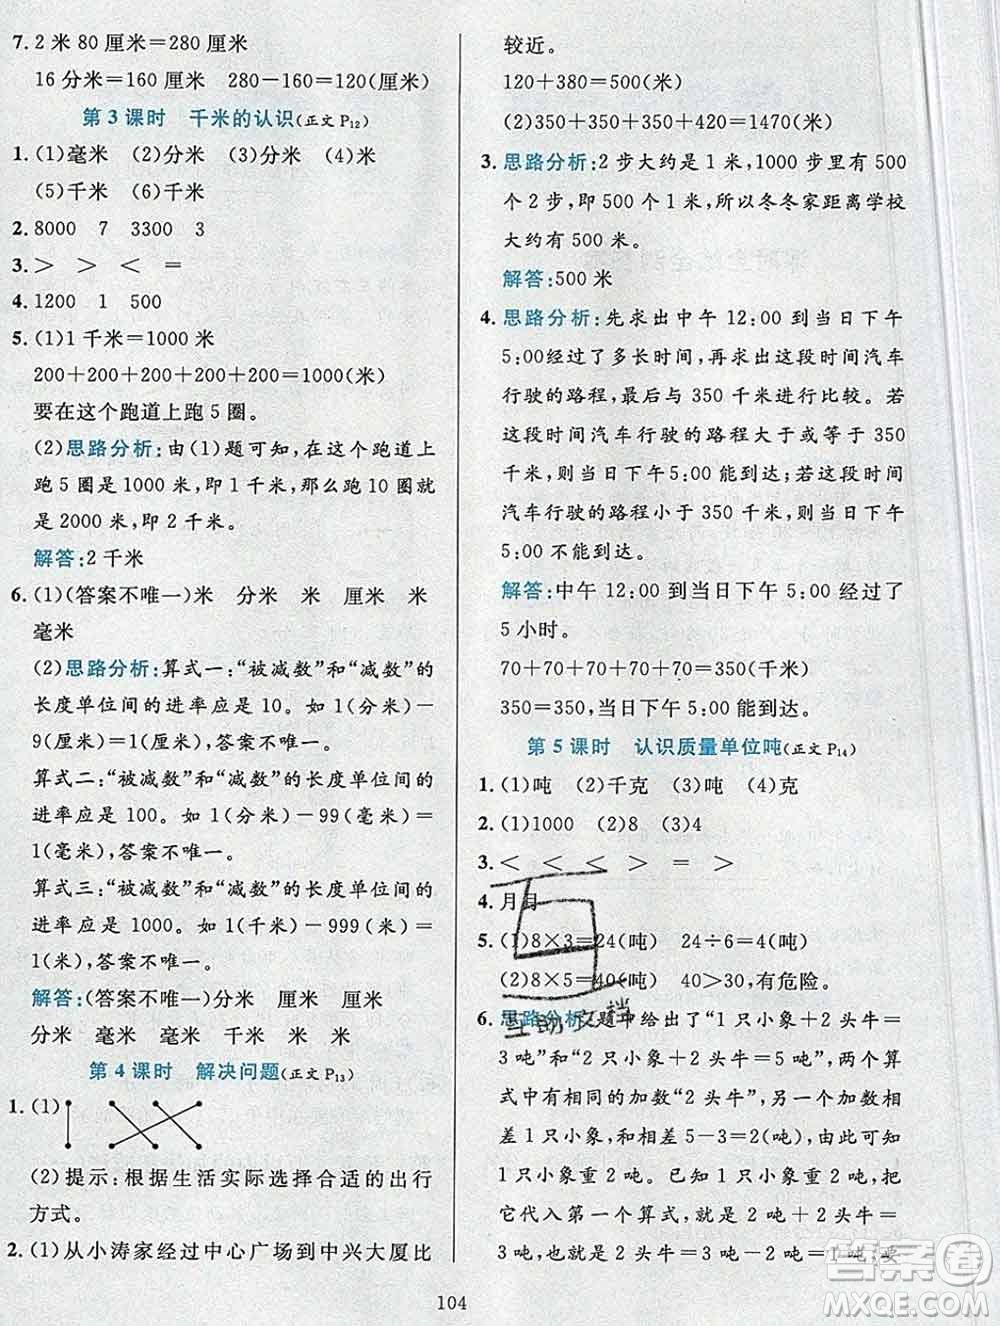 7. 2 米 80 厘米=280 厘米
16 分米=160 厘米 280-160=120(厘米)
第 3 课时 千米的认识(正文 P12)
1. (1)毫米 (2)分米 (3)分米 (4)米
(5)千米 (6)千米
2. 8000 7 3300 3
3. > > < =
4. 1200 1 500
5. (1)1 千米=1000 米
200+200+200+200+200=1000(米)
要在这个跑道上跑 5 圈。
(2)思路分析:由(1)题可知,在这个跑道上
跑 5 圈是 1000 米,即 1 千米,那么跑 10 圈就
是 2000 米,即 2 千米。
解答:2 千米
6. (1)(答案不唯一)米 分米 米 厘米 米
毫米
(2)思路分析:算式一:“被减数”和“减数”的
长度单位间的进率应是 10。如 1(分米)-
9(厘米)=1(厘米),答案不唯一。
算式二:“被减数”和“减数”的长度单位间的
进率应是 100。如 1(分米)-99(毫米)=
1(毫米),答案不唯一。
算式三:“被减数”和“减数”的长度单位间的
进率应是 1000。如 1(千米)-999(米)=
1(米),答案不唯一。
解答:(答案不唯一)分米 厘米 厘米
分米 毫米 毫米 千米 米 米
第 4 课时 解决问题(正文 P13)
1. (1)
(2)提示:根据生活实际选择合适的出行
方式。
2. (1)从小涛家经过中心广场到中兴大厦比
较近。
120+380=500(米)
(2)350+350+350+420=1470(米)
3. 思路分析:2 步大约是 1 米,1000 步里有 500
个 2 步,即 500 个 1 米,所以冬冬家距离学校
大约有 500 米。
解答:500 米
4. 思路分析:先求出中午 12:00 到当日下午
5:00经过了多长时间,再求出这段时间汽车
行驶的路程,最后与 350 千米进行比较。若
这段时间汽车行驶的路程大于或等于 350
千米,则当日下午 5:00 能到达;若这段时间
汽车行驶的路程小于 350 千米,则当日下午
5:00 不能到达。
解答:中午 12:00 到当日下午 5:00 经过了
5 小时。
70+70+70+70+70=350(千米)
350=350,当日下午 5:00 能到达。
第 5 课时 认识质量单位吨(正文 P14)
1. (1)吨 (2)千克 (3)吨 (4)克
2. (1)1000 (2)8 (3)4
3. < < < > = >
4. 月月
5. (1)8×3=24(吨) 24÷6=4(吨)
(2)8×5=40(吨) 40>30,有危险。
互助文档
6. 思路分析:题中给出了“1 只小象+2 头牛=
3 吨”和“2 只小象+2 头牛=5 吨”,两个算
式中有相同的加数“2 头牛”,另一个加数相
差 1 只小象,和相差 5-3=2(吨),由此可知
1 只小象重 2 吨。已知 1 只小象重 2 吨,把
它代入第一个算式,就是 2 吨+2 头牛=
3 吨,也就是 2 头牛=3 吨-2 吨=1 吨,要
104
答案圈
MXQE.COM